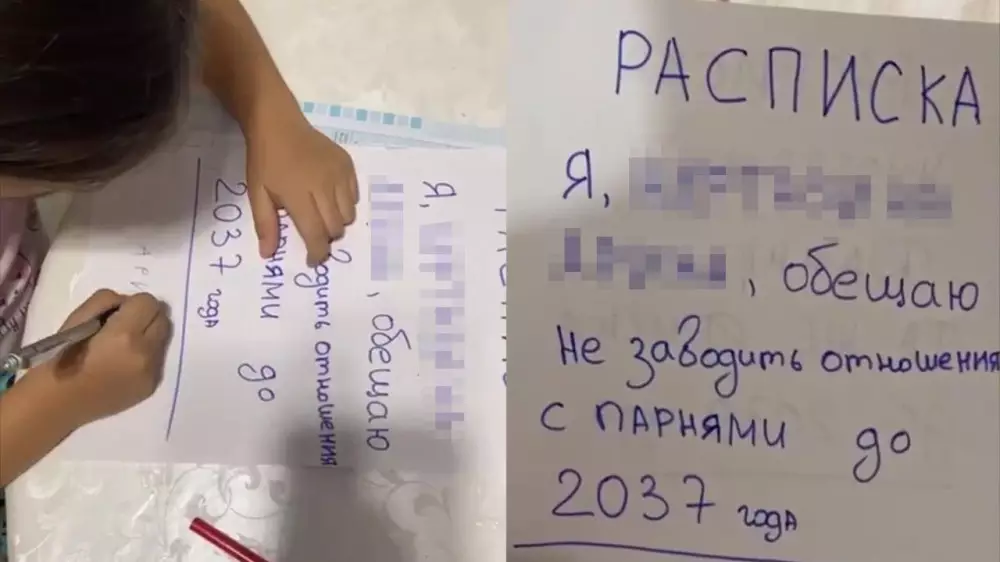 Я,
, обещаю
водить отношения
парнями до
2037 года
РАСПИСКА
Я,
, обещаю
не заводить отношения
с парнями до
2037 года